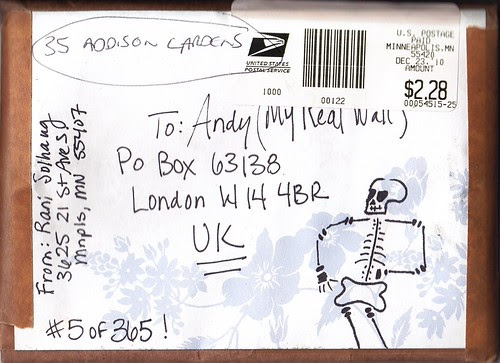 35 ADDISON GARDENS
UNITED STATES
POSTAL SERVICE
1000
00122
U.S. POSTAGE
PAID
MINNEAPOLIS, MN
55420
DEC 23, 10
AMOUNT
$2.28
00054515-25
To: Andy (My Real Wall)
Po Box 63138
London W14 4BR
UK
From: Rani Solhaug
3625 21st Ave S
Mnpls, MN 55407
#5 of 365!